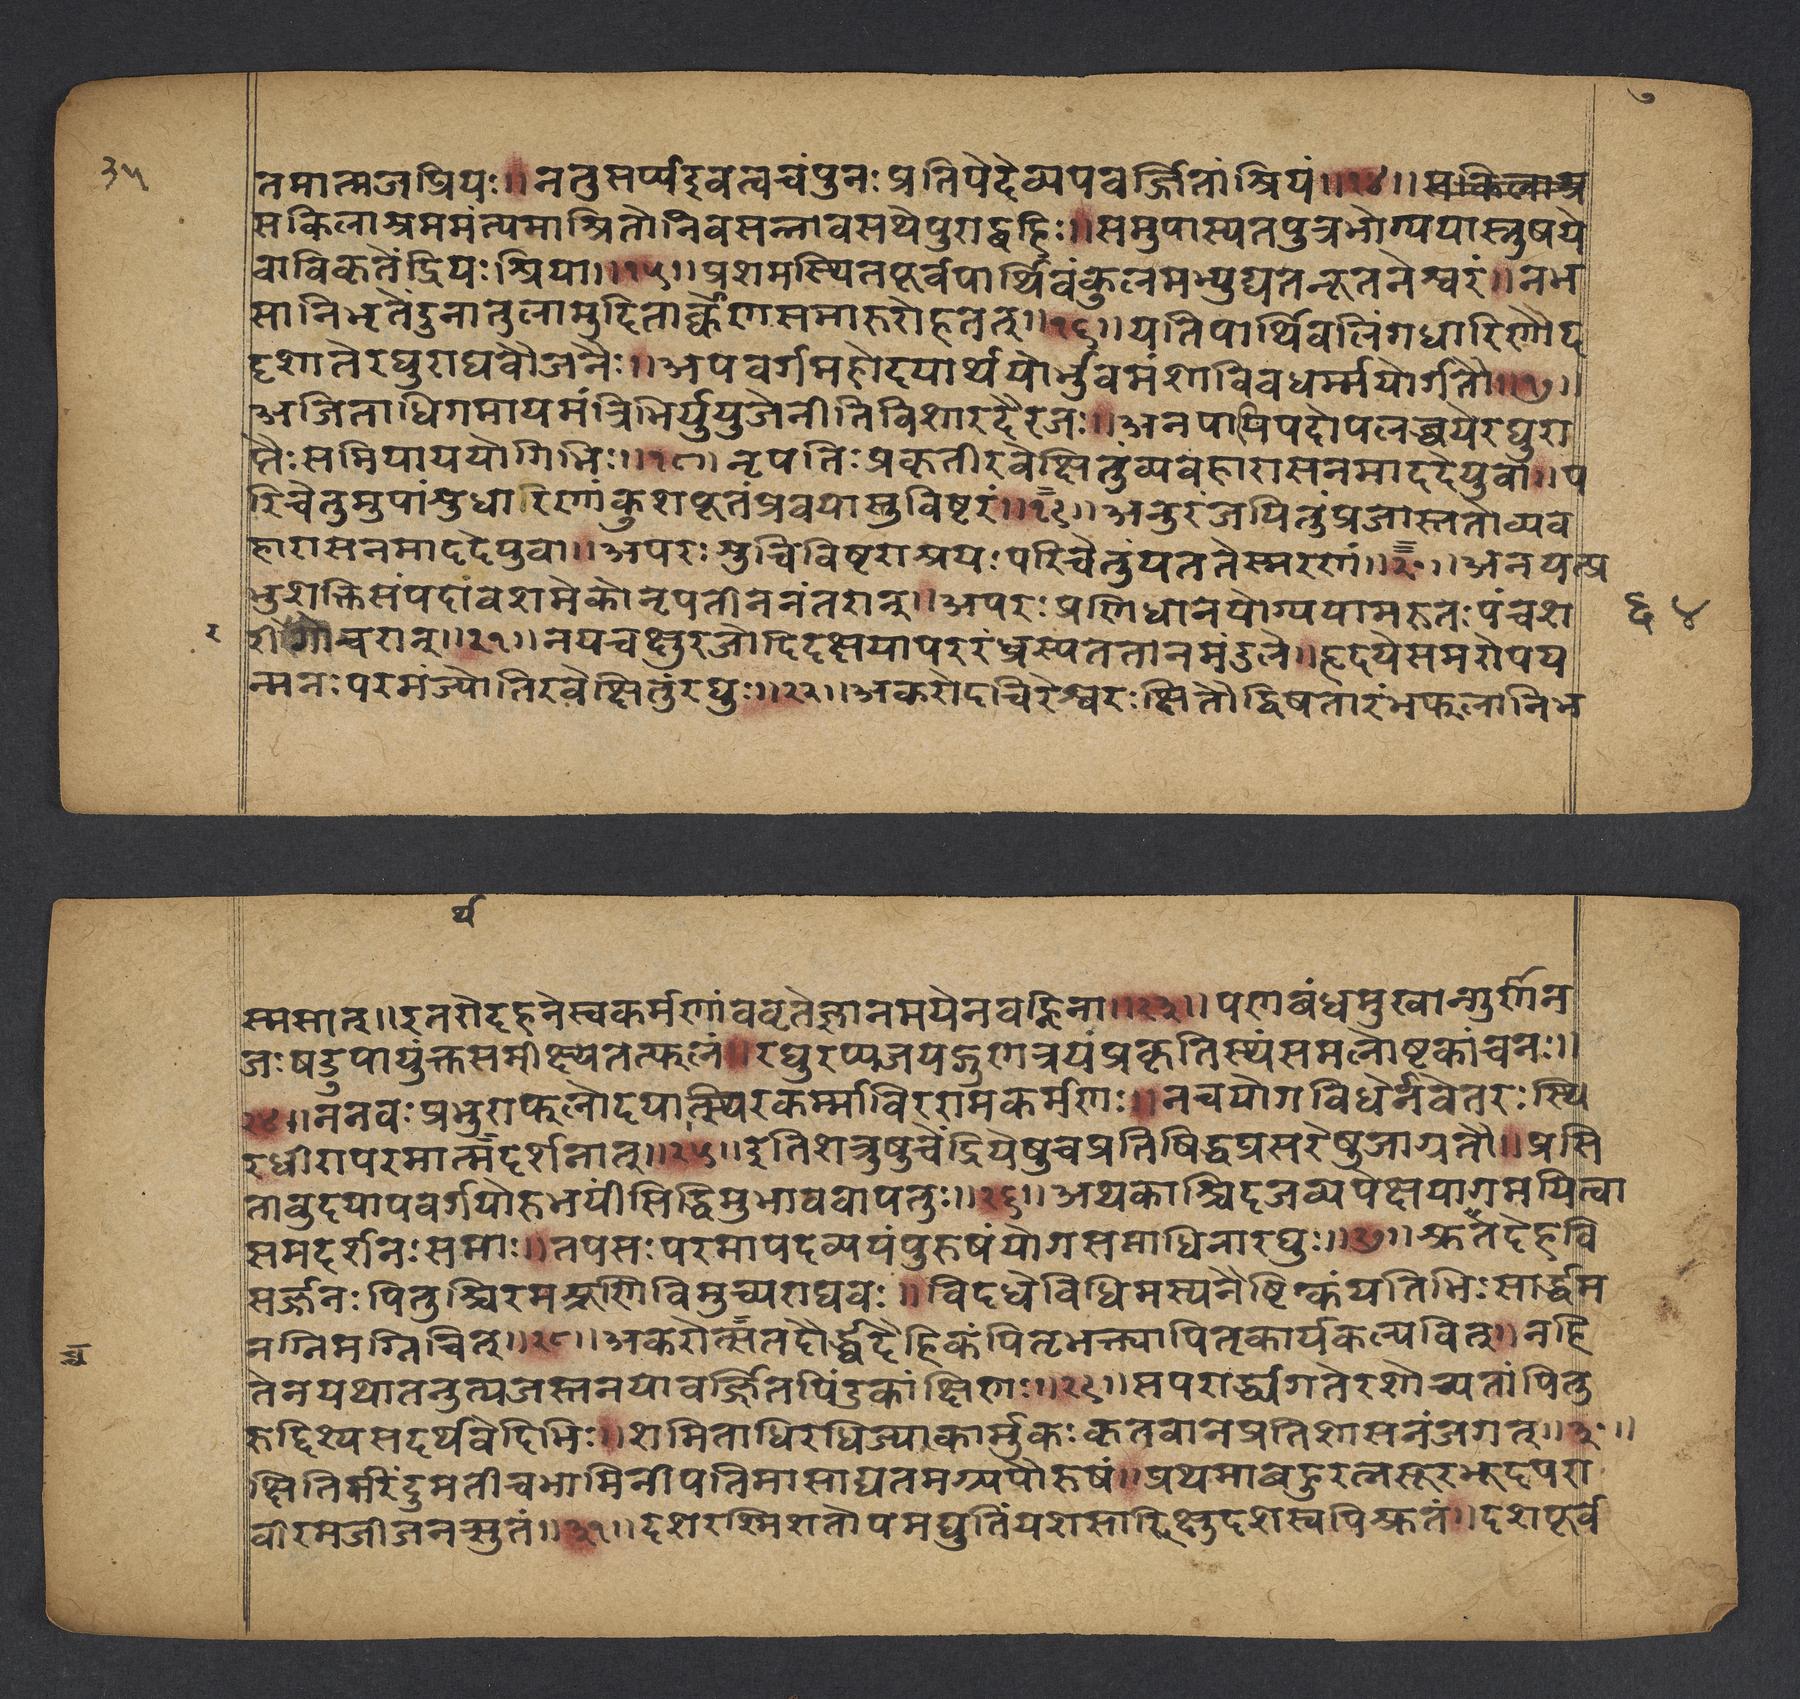 ७
३५
तमात्मजप्रियः॥ नतुसर्प्पइवत्वचंपुनः प्रतिपेदेव्यपवर्ज्जितांश्रियं॥१४॥ सकिलाश्र
सकिलाश्रममंत्यमाश्रितोनिवसन्नावसथेपुराद्बहिः॥ समुपास्यतपुत्रभोग्ययास्नुषये
वाविकृतेंद्रियःश्रिया॥१५॥ प्रशमस्थितपूर्वपार्थिवंकुलमभ्युद्यतनूतनेश्वरं॥ नभ
सानिभृतेंदुनातुलामुदितार्केणसमारुरोहतत्॥१६॥ यतिपार्थिवलिंगधारिणौद
दृशातेरघुराघवौजनैः॥ अपवर्गमहोदयार्थयोर्भुवमंशाविवधर्म्मयोर्गतौ॥१७॥
अजिताधिगमायमंत्रिभिर्युयुजेनीतिविशारदैरजः॥ अनपायिपदोपलब्धयेरघुरा
प्तैःसमियाययोगिभिः॥१८॥ नृपतिःप्रकृतीरवेक्षितुंव्यवहारासनमाददेयुवा॥ प
रिचेतुमुपांशुधारिणांकुशपूतंप्रवयास्तुविष्टरं॥१९॥ अनुरंजयितुंप्रजास्ततोव्यव
हारासनमाददेयुवा॥ अपरःशुचिविष्टराश्रयःपरिचेतुंयततेस्मरणां॥२०॥ अनयत्प्र
भुशक्तिसंपदांवशमेकोनृपतीननंतरान्॥ अपरःप्रणिधानयोग्ययामरुतःपंचश
६४
र
रीगोचरान्॥२१॥ नयचक्षुरजोदिदृक्षयापररंध्रस्यततानमंडले॥ हृदयेसमरोपय
न्मनःपरमंज्योतिरवेक्षितुंरघुः॥२२॥ अकरोदचिरेश्वरःक्षितौद्विषतारंभफलानिभ
र्थ
स्मसात्॥ इतरोदहनेस्वकर्मणांववृतेज्ञानमयेनवह्निना॥२३॥ पणबंधमुखान्गुणान
जःषडुपायुंक्तसमीक्ष्यतत्फलं॥ रघुरप्यजयद्गुणत्रयंप्रकृतिस्थंसमलोष्टकांचनः॥
२४॥ ननवःप्रभुराफलोदयात्स्थिरकर्म्माविररामकर्मणः॥ नचयोगविधेर्नवेतरःस्थि
रधीरापरमात्मदर्शनात्॥२५॥ इतिशत्रुषुचेंद्रियेषुचप्रतिषिद्धप्रसरेषुजाग्रतौ॥ प्रसि
तावुदयापवर्गयोरुभयींसिद्धिमुभाववापतुः॥२६॥ अथकाश्चिदजव्यपेक्षयागमयित्वा
समदर्शनःसमाः॥ तपसःपरमापदव्ययंपुरुषंयोगसमाधिनारघुः॥२७॥ श्रुतदेहवि
सर्ज्जनःपितुश्चिरमश्रूणिविमुच्यराघवः॥ विदधेविधिमस्यनैष्ठिकंयतिभिःसार्द्धम
नग्निमग्निचित्॥२८॥ अकरोत्सतदौर्द्ध्वदैहिकंपितृभक्त्यापितृकार्यकल्पवित्॥ नहि
तेनयथातनुत्यजस्तनयावर्ज्जितपिंडकांक्षिणः॥२९॥ सपरार्द्ध्यगतेरशोच्यतांपितु
रुद्दिश्यसदर्थवेदिभिः॥ शमिताधिरधिज्याकार्मुकःकृतवानप्रतिशासनंजगत्॥३०॥
क्षितिरिंदुमतीचभामिनीपतिमासाद्यतमग्र्यपौरुषं॥ प्रथमाबहुरत्नसूरभूदपरा
वीरमजीजनत्सुतं॥३१॥ दशरश्मिशतोपमद्युतिंयशसादिक्षुदशस्वपिश्रुतं॥ दशपूर्व